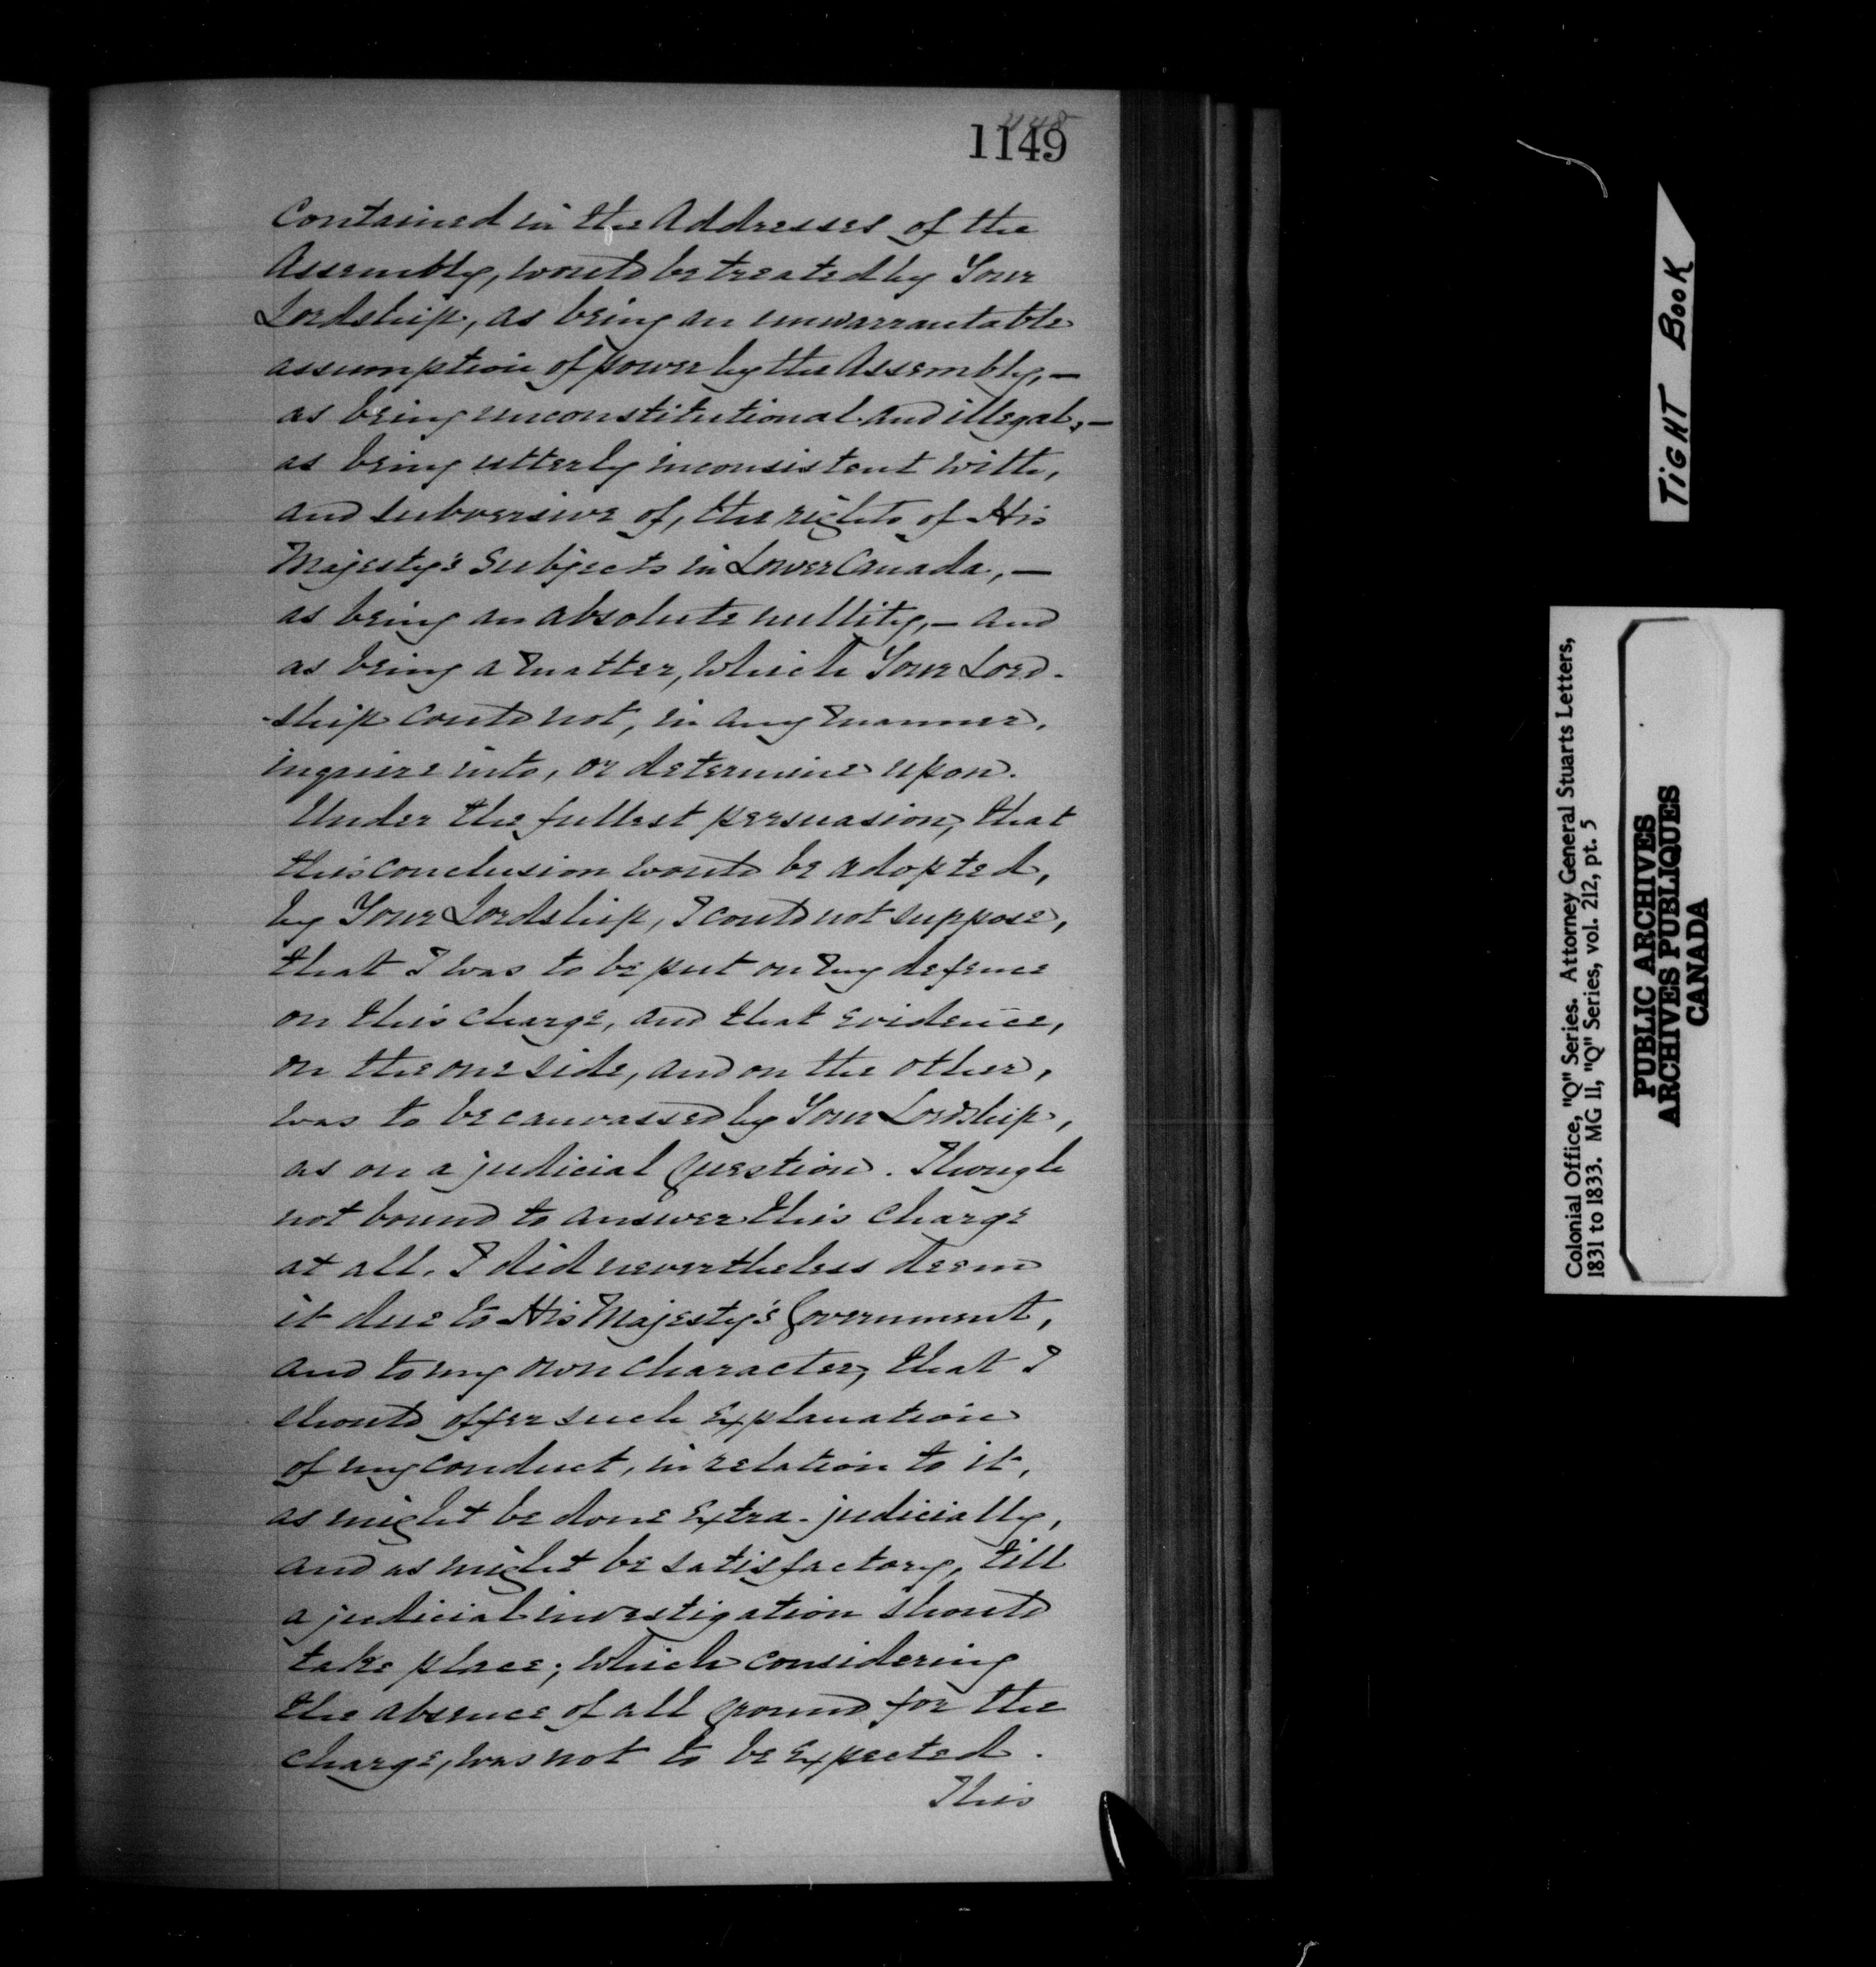 1149
contained in the Addresses of the
Assembly, would be treated by Your
Lordship, as being an unwarrantable
assumption of power by the Assembly, —
as being unconstitutional and illegal, —
as being utterly inconsistent with,
and subversive of, the rights of His
Majesty's Subjects in Lower Canada, —
as being an absolute nullity, — and
as being a matter, which Your Lord-
-ship could not, in any manner,
inquire into, or determine upon.
Under the fullest persuasion, that
this conclusion would be adopted,
by Your Lordship, I could not suppose,
that I was to be put on my defence
on this charge, and that evidence,
on the one side, and on the other,
was to be canvassed by Your Lordship,
as on a judicial question. Though
not bound to answer this charge
at all, I did nevertheless deem
it due to His Majesty's Government,
and to my own character, that I
should offer such explanation
of my conduct, in relation to it,
as might be done extra-judicially,
and as might be satisfactory, till
a judicial investigation should
take place; which considering
the absence of all ground for the
charge, was not to be expected.
This
TIGHT BOOK
Colonial Office, "Q" Series. Attorney General Stuarts Letters,
1831 to 1833. MG 11, "Q" Series, vol. 212, pt. 5
PUBLIC ARCHIVES
ARCHIVES PUBLIQUES
CANADA